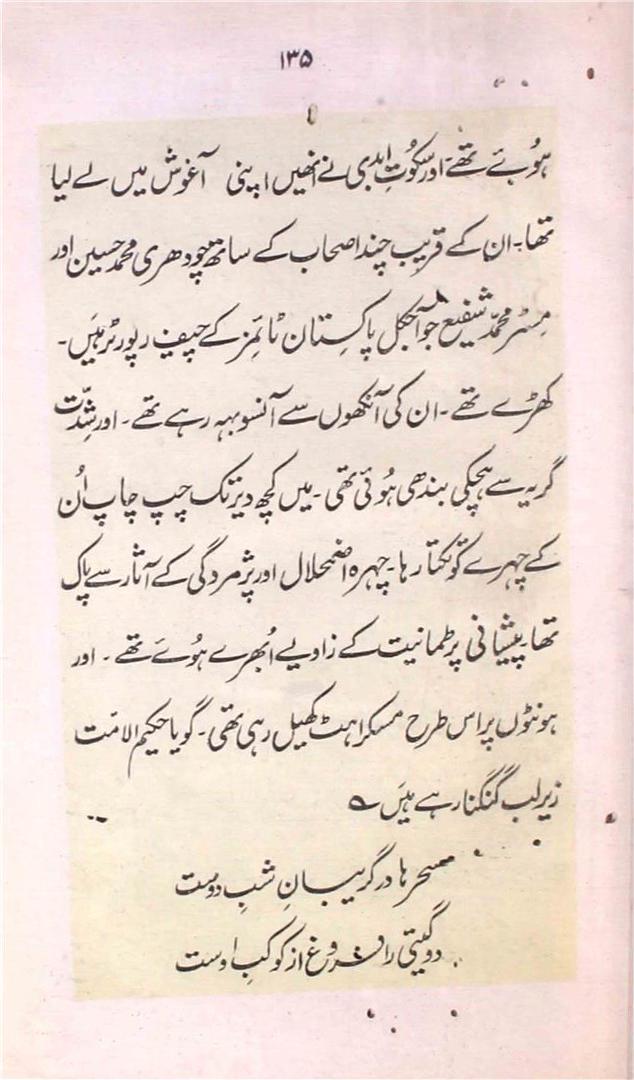 ۱۳۵
ہوُئے تھے۔ اور سکوُتِ ابدی نے انھیں اپنی آغوش میں لے لیا
تھا۔ ان کے قریب چند اصحاب کے ساتھ چودھری محمد حسین اور
مِسٹر محمدّ شفیع جو آجکل پاکِستان ٹائمِز کے چیف رپورٹر ہیَں۔
کھڑے تھے۔ ان کی آنکھوں سے آنسو بہہ رہے تھے۔ اور شِدّت
گریہ سے ہچکی بندھی ہوُئی تھی۔ میں کچھ دیر تک چپ چاپ اُن
کے چہرے کو تکتا رہا۔ چہرہ اضمحلال اور پژمردگی کے آثار سے پاک
تھا۔ پیشانی پر طمانیت کے زاویے اُبھرے ہوُئے تھے۔ اور
ہونٹوں پر اس طرح مسکراہٹ کھیل رہی تھی۔ گویا حکیم الامّت
زیرلب گنگنا رہے ہیَں ؎
سحرہا در گریبانِ شبِ دوست
دو گیتی را فروغ از کوکبِ اوست